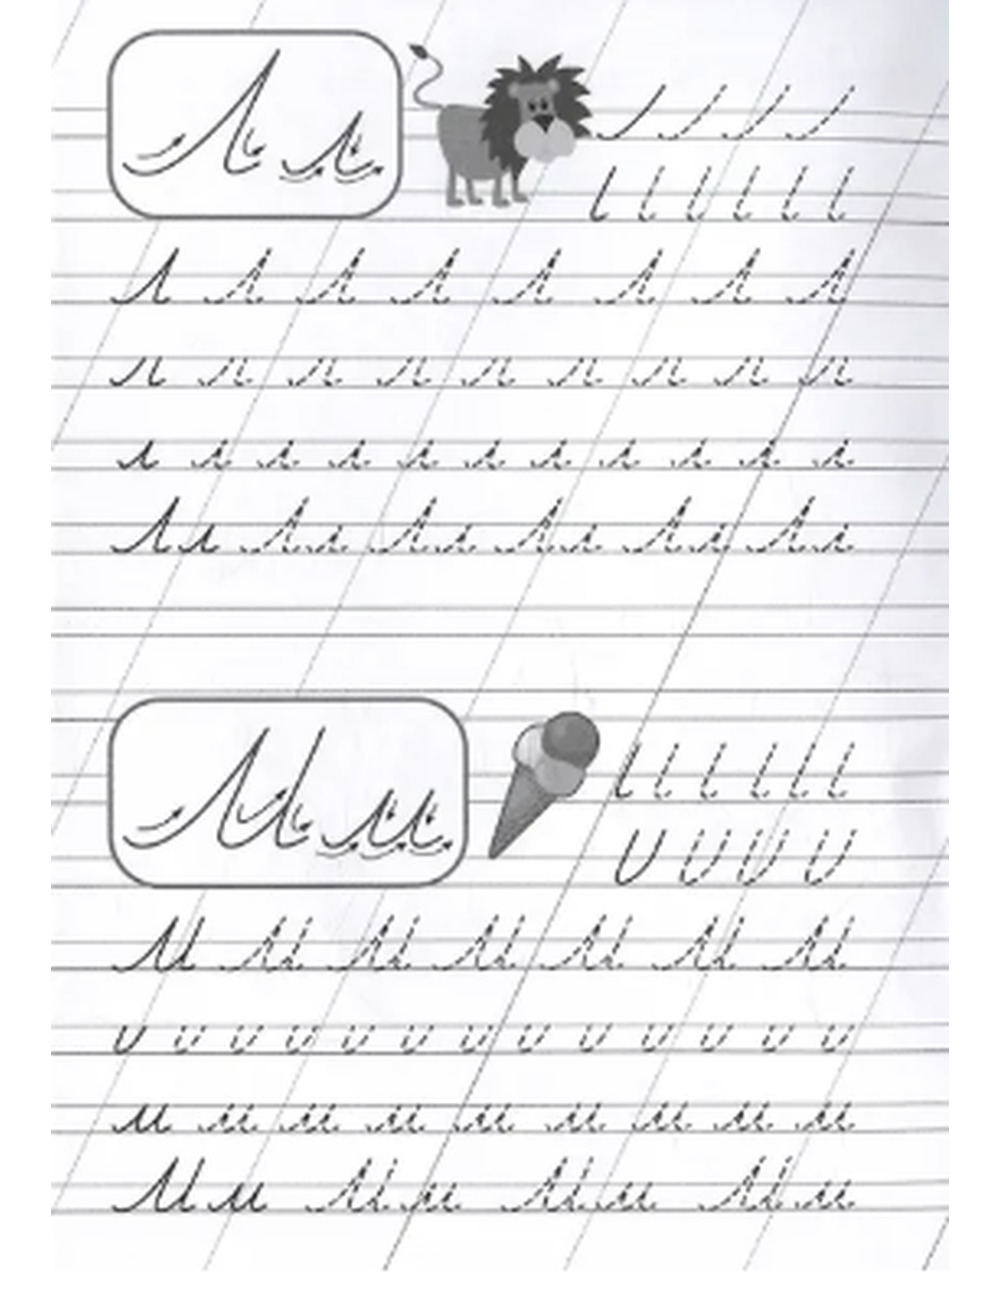 Л л
Л Л Л Л Л Л Л Л
л л л л л л л л л
л л л л л л л л л л л
Лл Лл Лл Лл Лл Лл
М м
М М М М М М М
м м м м м м м м м
Мм Мм Мм Мм